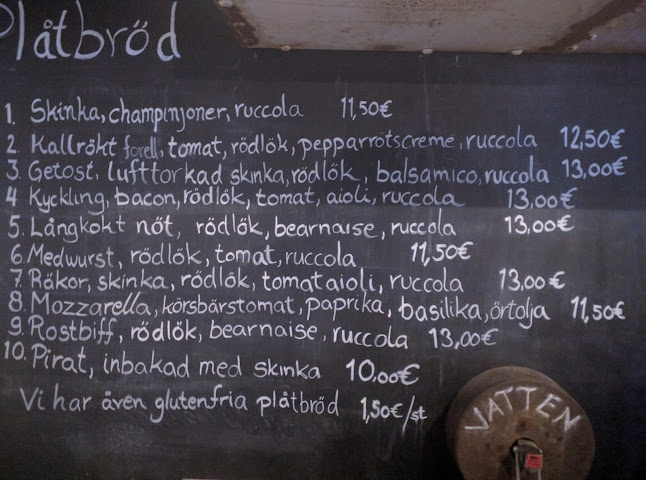 Plåtbröd
1. Skinka, champinjoner, ruccola 11,50€
2. Kallrökt forell, tomat, rödlök, pepparrotscreme, ruccola 12,50€
3. Getost, lufttorkad skinka, rödlök, balsamico, ruccola 13,00€
4 Kyckling, bacon, rödlök, tomat, aioli, ruccola 13,00€
5. Långkokt nöt, rödlök, bearnaise, ruccola 13,00€
6. Medwurst, rödlök, tomat, ruccola 11,50€
7. Räkor, skinka, rödlök, tomataioli, ruccola 13,00€
8. Mozzarella, körsbärstomat, paprika, basilika, örtolja 11,50€
9. Rostbiff, rödlök, bearnaise, ruccola 13,00€
10. Pirat, inbakad med skinka 10,00€
Vi har även glutenfria plåtbröd 1,50€/st
VATTEN